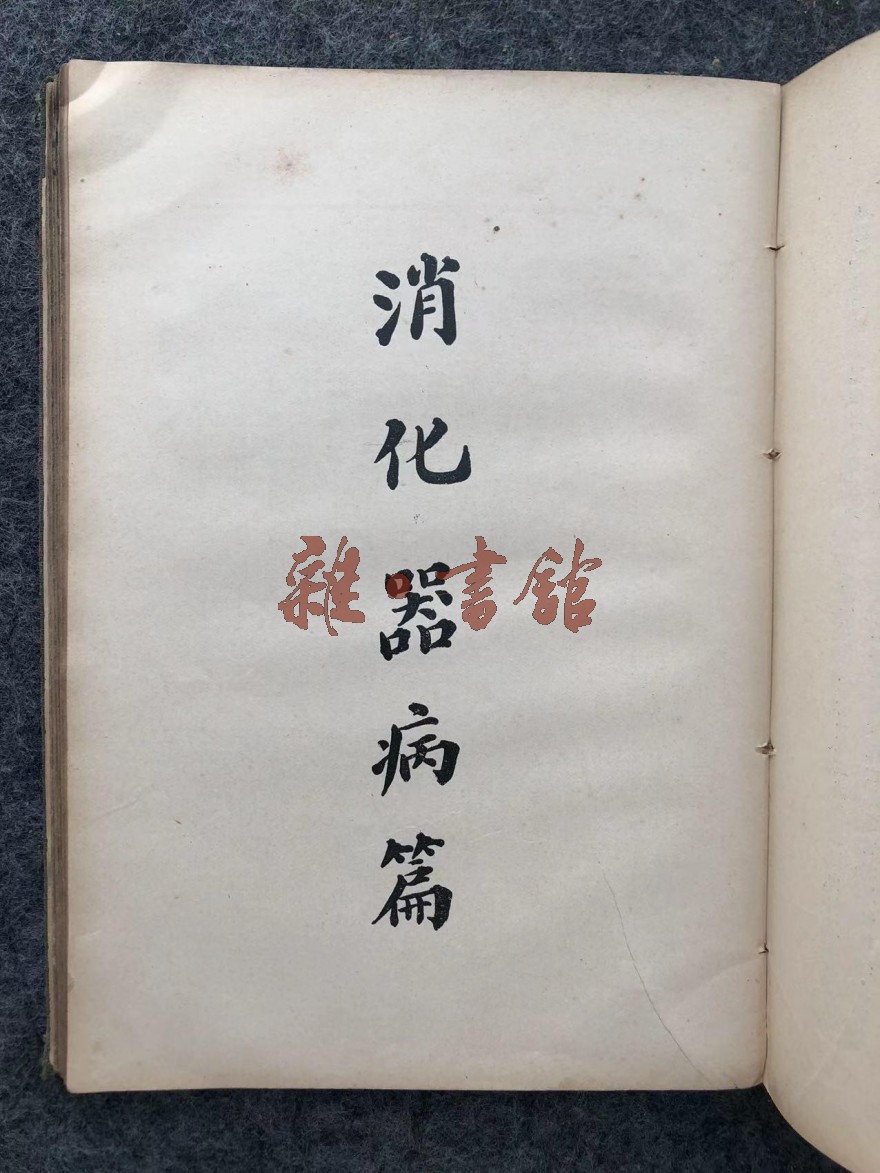 消化器病篇
雜·書館